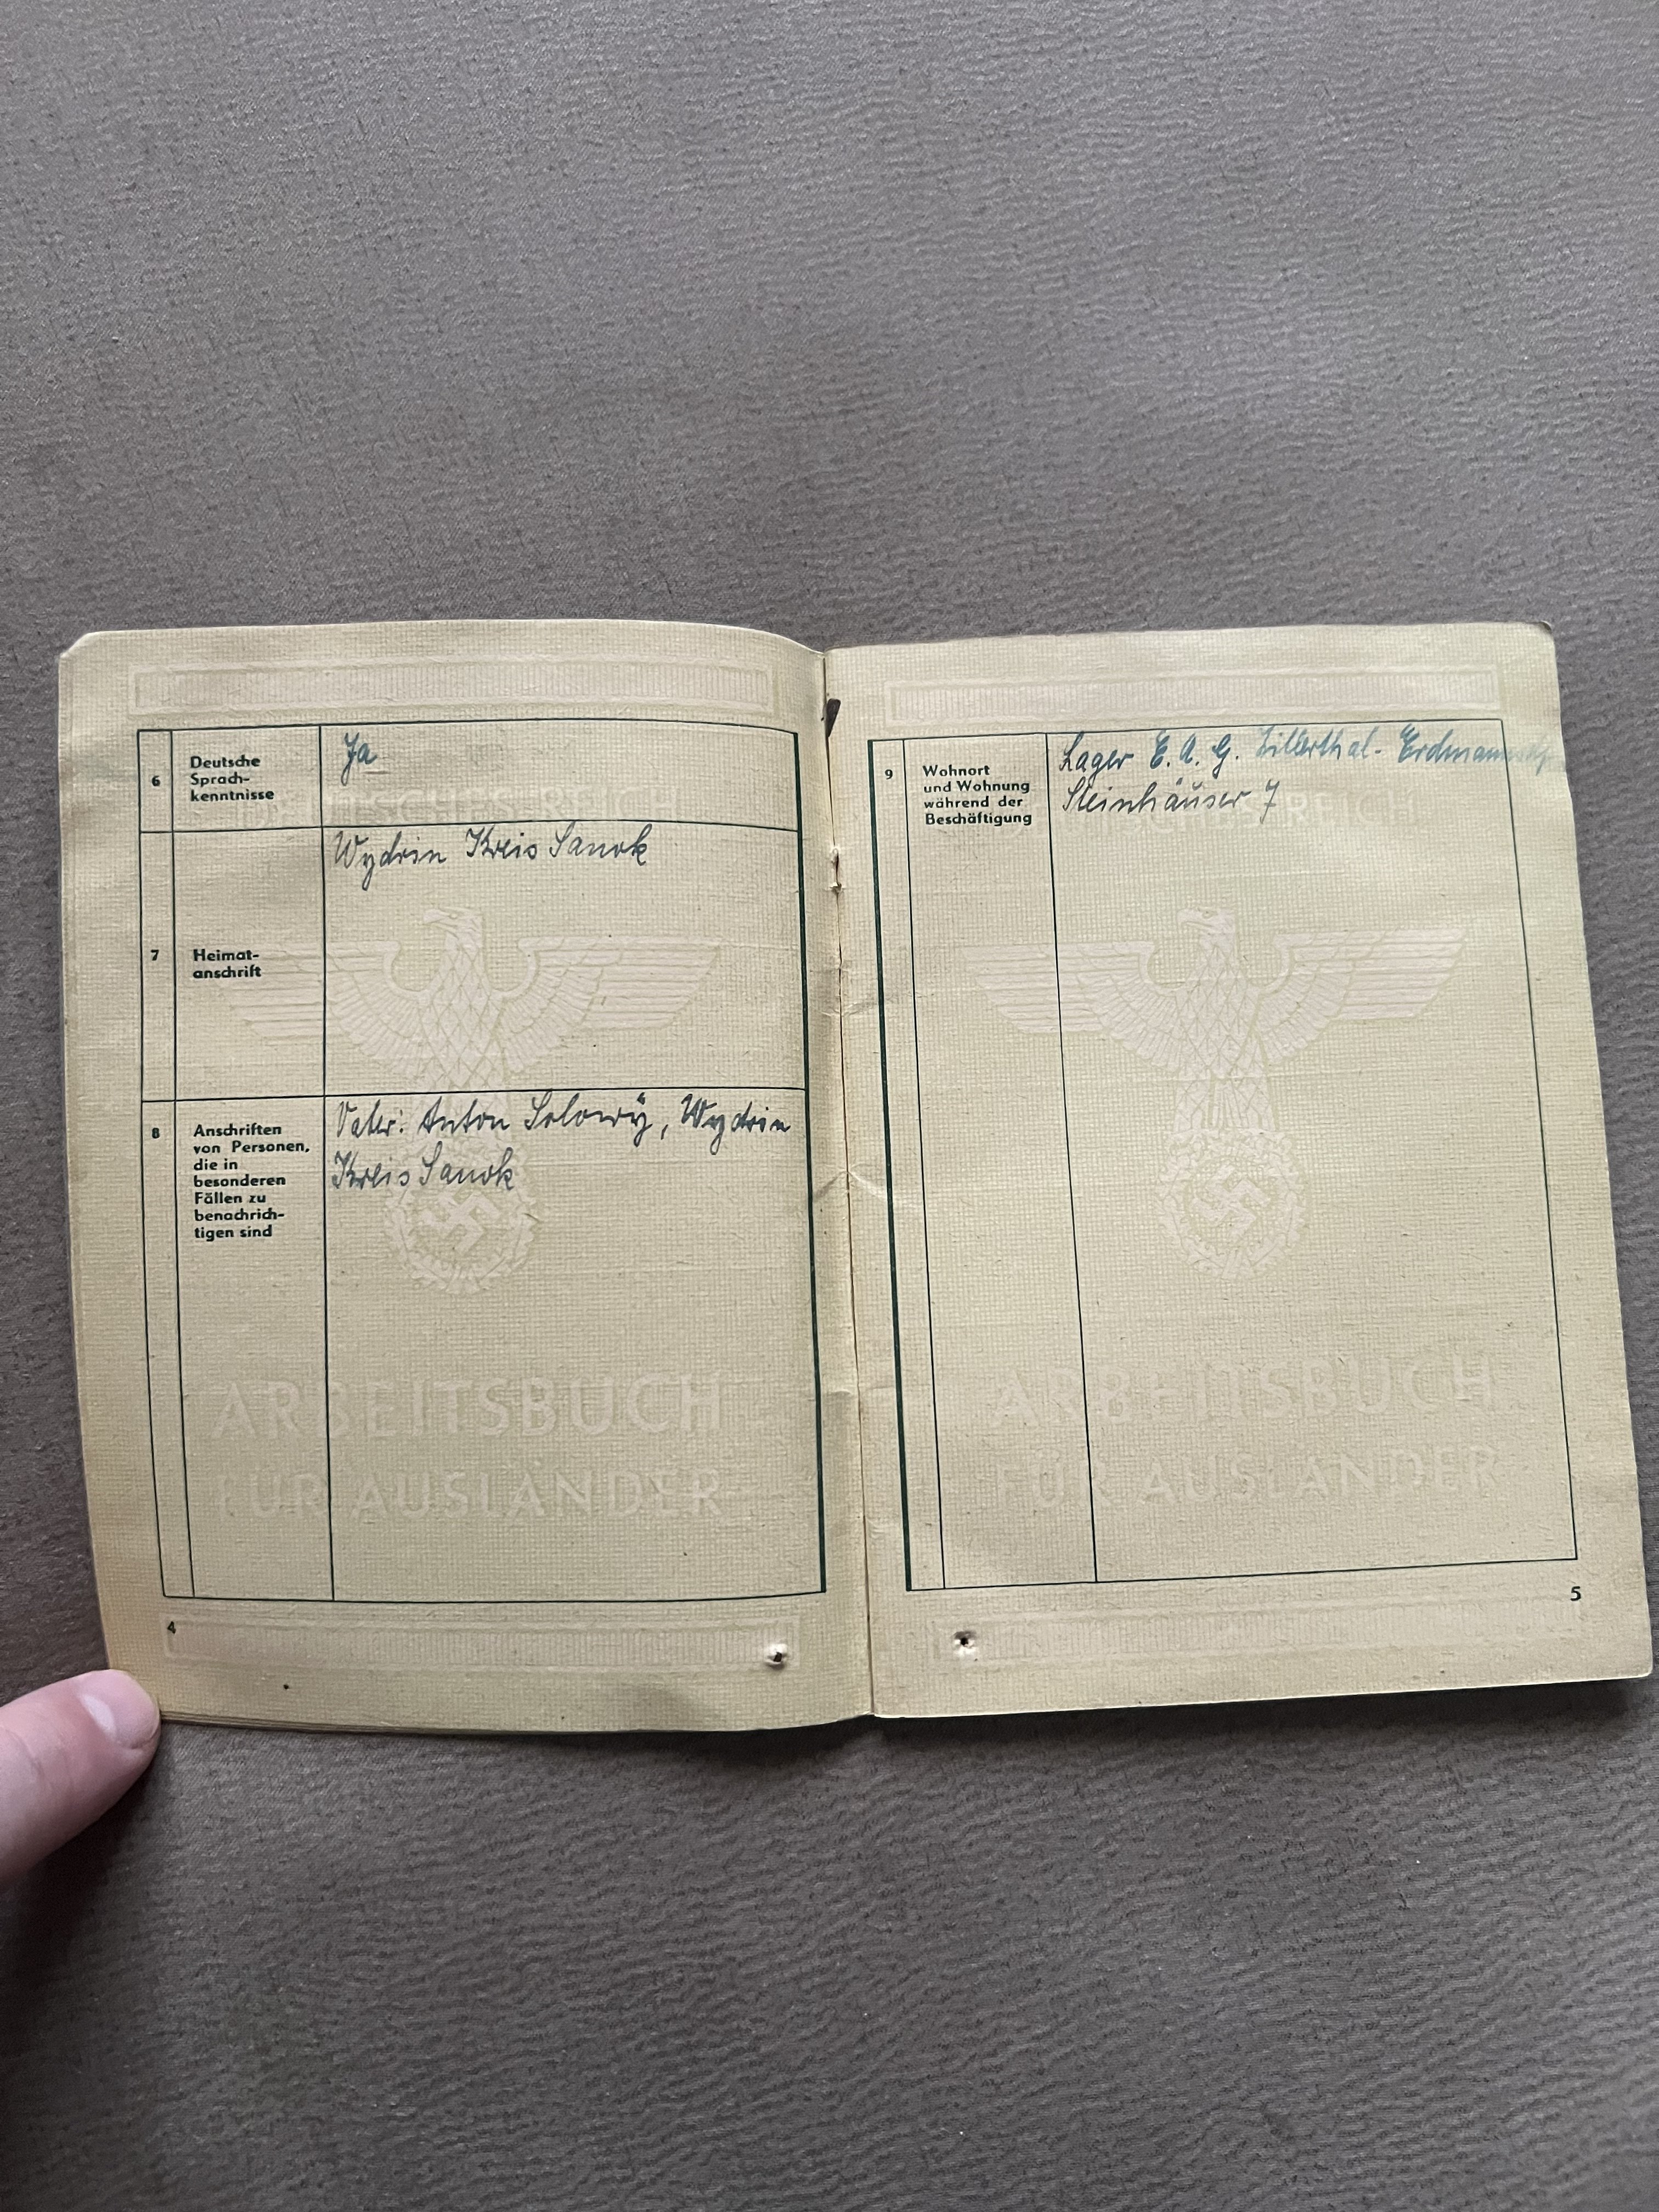 6
Deutsche
Sprach-
kenntnisse
Ja
7
Heimat-
anschrift
Wydrin Kreis Sanok
8
Anschriften
von Personen,
die in
besonderen
Fällen zu
benachrich-
tigen sind
Vater: Anton Solowÿ, Wydrin
Kreis Sanok
DEUTSCHES REICH
ARBEITSBUCH
FÜR AUSLÄNDER
4
9
Wohnort
und Wohnung
während der
Beschäftigung
Lager E. A. G. Zillerthal-
Steinhäuser 7
ARBEITSBUCH
FÜR AUSLÄNDER
5